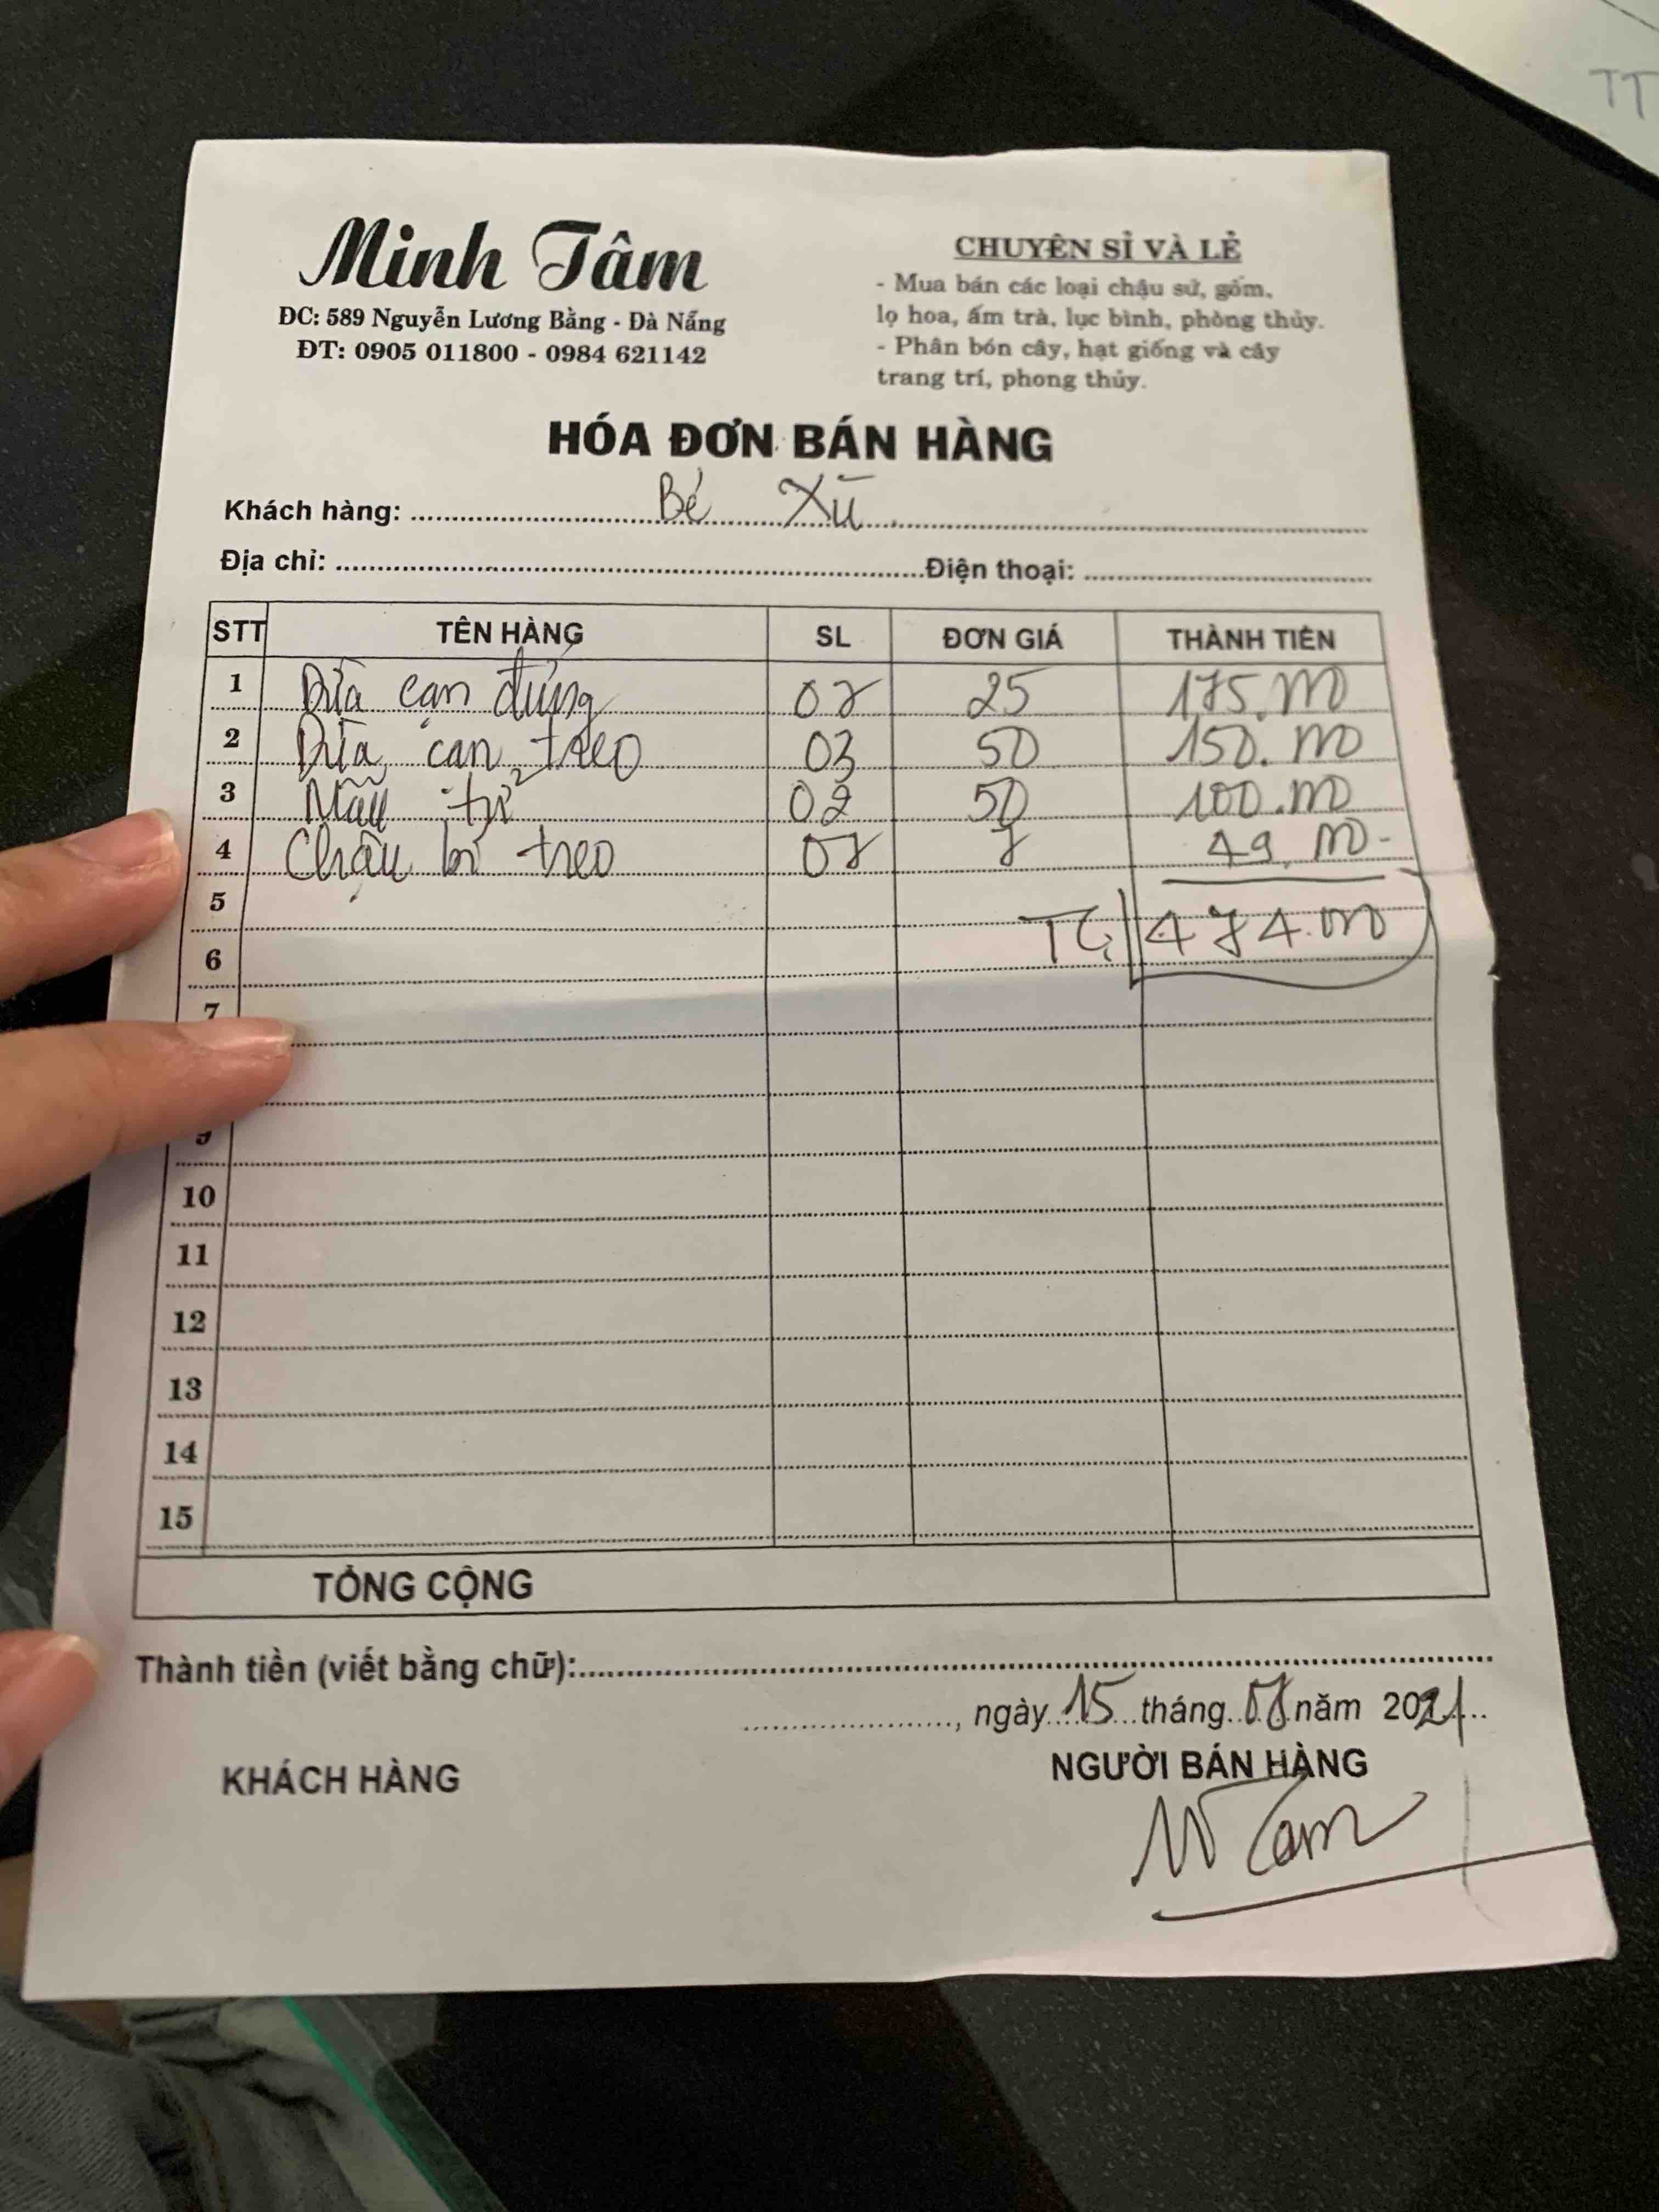 TT
Minh Tâm
ĐC: 589 Nguyễn Lương Bằng - Đà Nẵng
ĐT: 0905 011800 - 0984 621142
CHUYÊN SỈ VÀ LẺ
- Mua bán các loại chậu sứ, gốm,
lọ hoa, ấm trà, lục bình, phòng thủy.
- Phân bón cây, hạt giống và cây
trang trí, phong thủy.
HÓA ĐƠN BÁN HÀNG
Khách hàng: Bé Xù
Địa chỉ: Điện thoại:
STT TÊN HÀNG SL ĐƠN GIÁ THÀNH TIỀN
1 Dừa cạn đứng 07 25 175.000
2 Dừa cạn treo 03 50 150.000
3 Mẫu tử 02 50 100.000
4 Chậu treo 07 7 49.000
5
TC 474.000
6
7
9
10
11
12
13
14
15
TỔNG CỘNG
Thành tiền (viết bằng chữ):
, ngày 15 tháng năm 2021
KHÁCH HÀNG NGƯỜI BÁN HÀNG